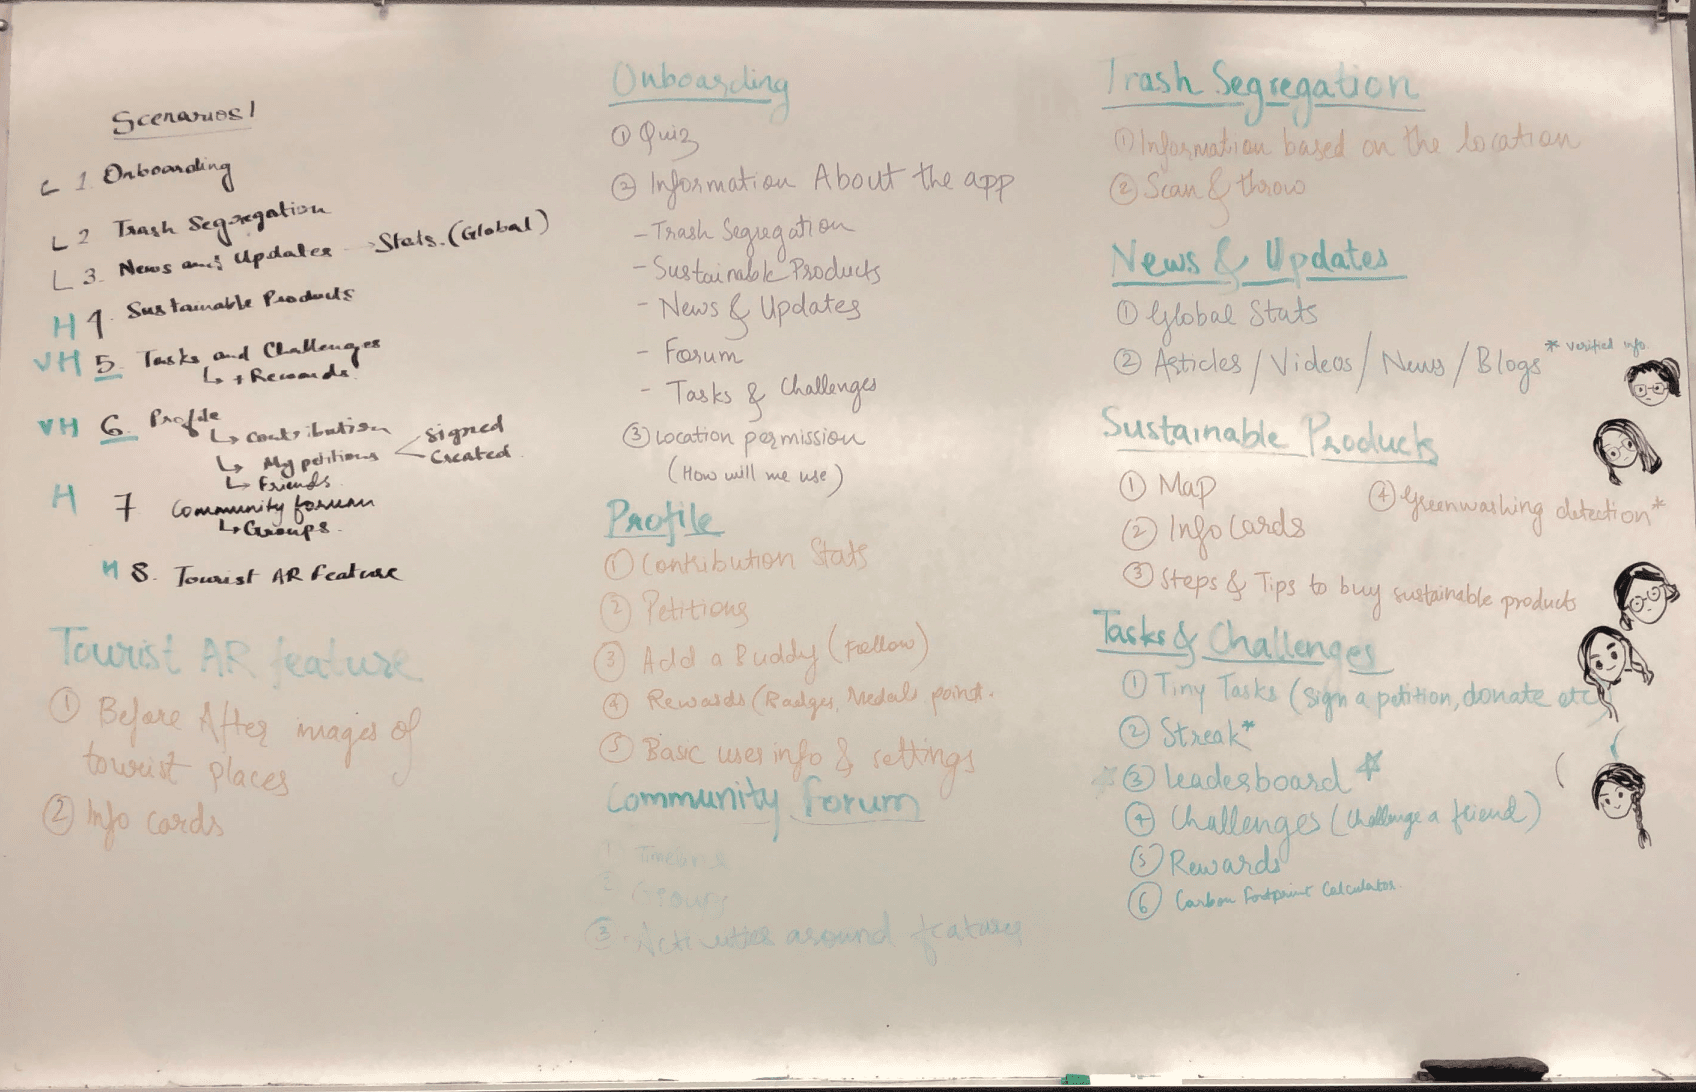 Scenarios
L 1. Onboarding
L 2 Trash Segregation
L 3. News and Updates → Stats. (Global)
H 4. Sustainable Products
VH 5. Tasks and Challenges
↳ + Rewards.
VH 6. Profile
↳ Contribution
↳ My petitions < Signed
Created
↳ Friends
H 7 Community forum
↳ Groups.
H 8. Tourist AR feature
Tourist AR feature
① Before After images of
tourist places
② Info cards
Onboarding
① Quiz
② Information About the app
- Trash Segregation
- Sustainable Products
- News & Updates
- Forum
- Tasks & Challenges
③ Location permission
(How will me use)
Profile
① Contribution Stats
② Petitions
③ Add a Buddy (Follow)
④ Rewards (Badges, Medals point.
⑤ Basic user info & settings
Community Forum
1 Timeline
2 Groups
③ Activities around feature
Trash Segregation
① Information based on the location
② Scan & throw
News & Updates
① Global Stats
② Articles / Videos / News / Blogs * verified info.
Sustainable Products
① Map
② Info Cards
③ Steps & Tips to buy sustainable products
④ Greenwashing detection*
Tasks & Challenges
① Tiny Tasks (Sign a petition, donate etc)
② Streak*
☆ ③ leaderboard ☆
④ Challenges (Challenge a friend)
⑤ Rewards
⑥ Carbon Footprint Calculator.